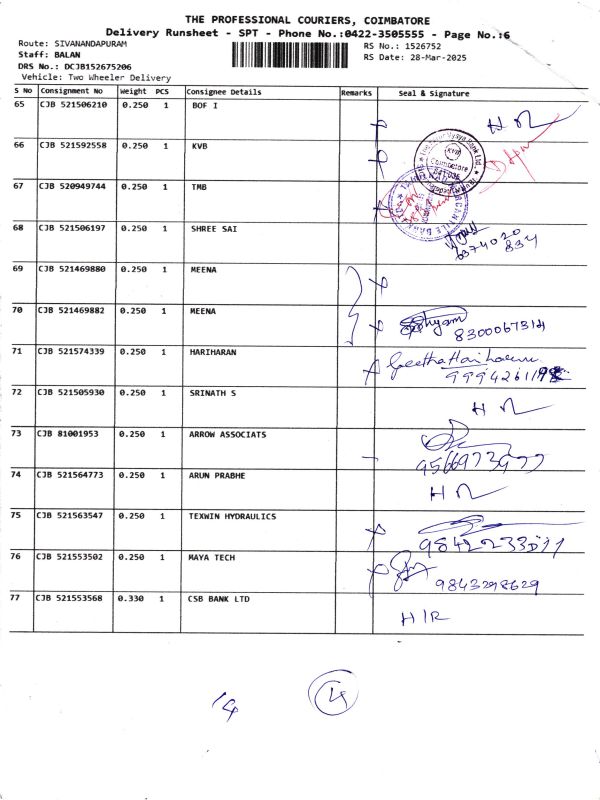 THE PROFESSIONAL COURIERS, COIMBATORE
Delivery Runsheet - SPT - Phone No.:0422-3505555 - Page No.:6
Route: SIVANANDAPURAM RS No.: 1526752
Staff: BALAN RS Date: 28-Mar-2025
DRS No.: DCJB152675206
Vehicle: Two Wheeler Delivery
S No Consignment No Weight PCS Consignee Details Remarks Seal & Signature
65 CJB 521506210 0.250 1 BOF I
66 CJB 521592558 0.250 1 KVB
KVB
Coimbatore
67 CJB 520949744 0.250 1 TMB
68 CJB 521506197 0.250 1 SHREE SAI
6374020
834
69 CJB 521469880 0.250 1 MEENA
70 CJB 521469882 0.250 1 MEENA
8300067314
71 CJB 521574339 0.250 1 HARIHARAN Geetha Hariharan
72 CJB 521505930 0.250 1 SRINATH S
73 CJB 81001953 0.250 1 ARROW ASSOCIATS
9566973977
74 CJB 521564773 0.250 1 ARUN PRABHE
75 CJB 521563547 0.250 1 TEXWIN HYDRAULICS
76 CJB 521553502 0.250 1 MAYA TECH
9843298629
77 CJB 521553568 0.330 1 CSB BANK LTD
H/R
14 14